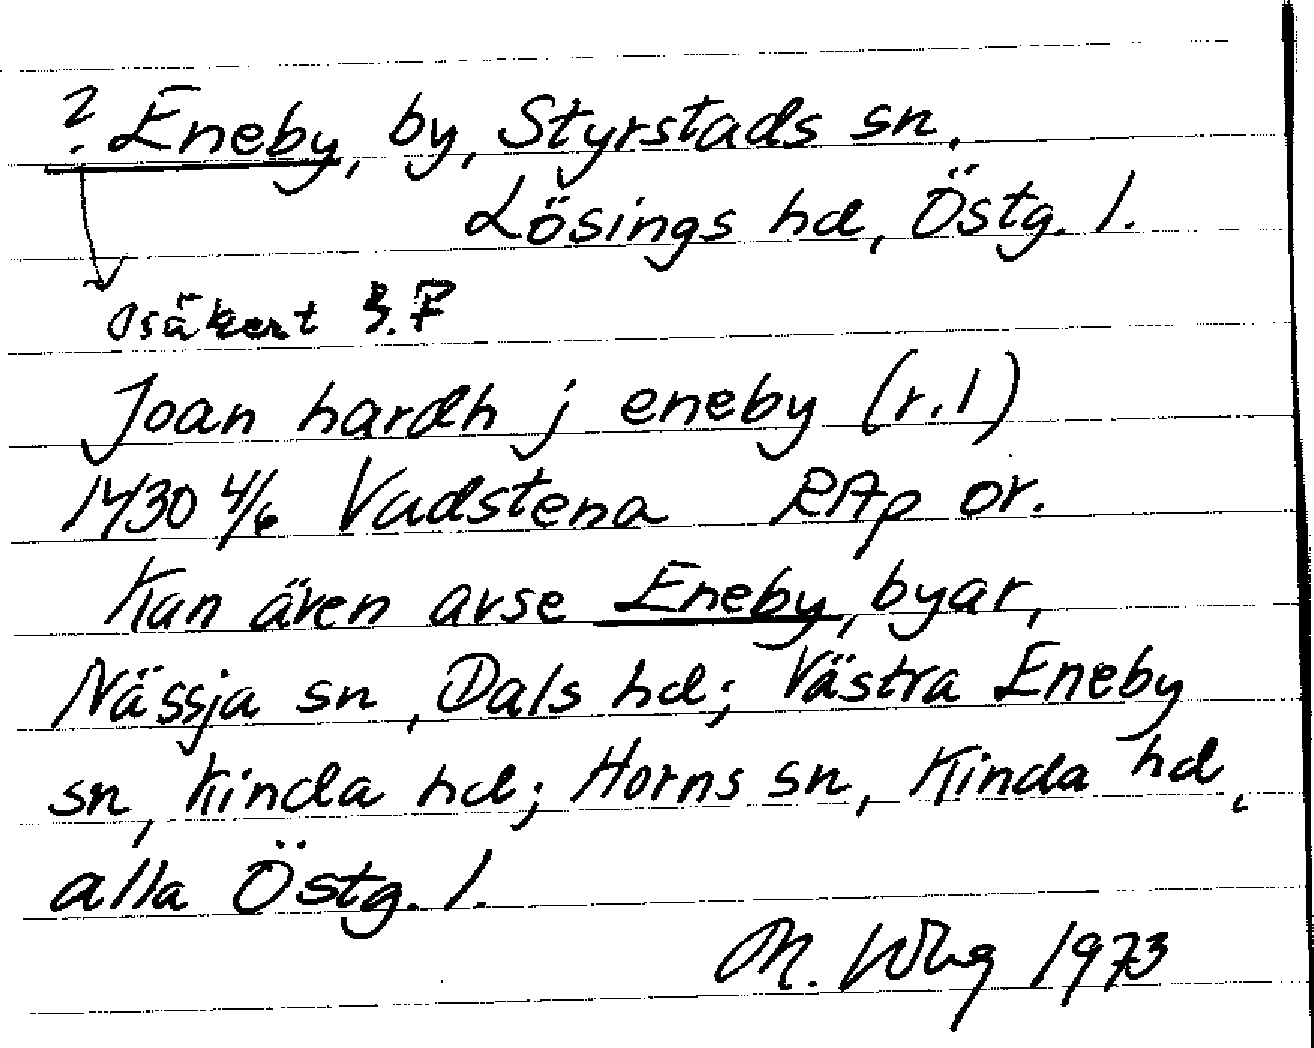 ? Eneby, by, Styrstads sn,
Lösings hd, Östg. l.
osäkert S.F
Joan hardh j eneby (r.l)
1430 4/6 Vadstena RAp or.
Kan även avse Eneby, byar,
Nässja sn, Dals hd; Västra Eneby
sn, Kinda hd; Horns sn, Kinda hd,
alla Östg. l.
M. Wbg 1973